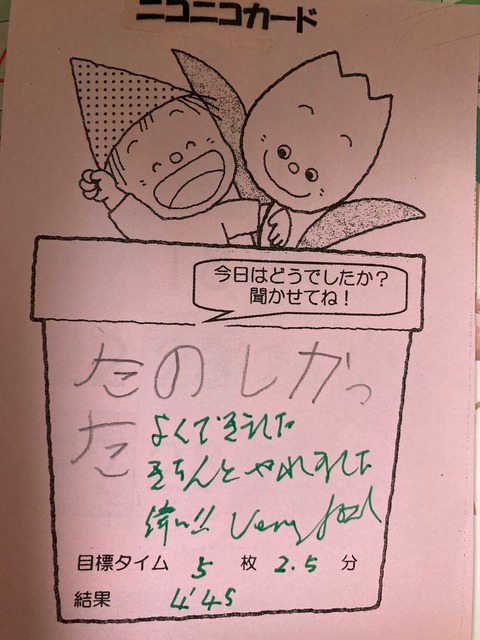 ニコニコカード
今日はどうでしたか？
聞かせてね！
たのしかっ
た
よくできました
きちんとやれました
偉い!! Very good
目標タイム 5 枚 2.5 分
結果 4'45